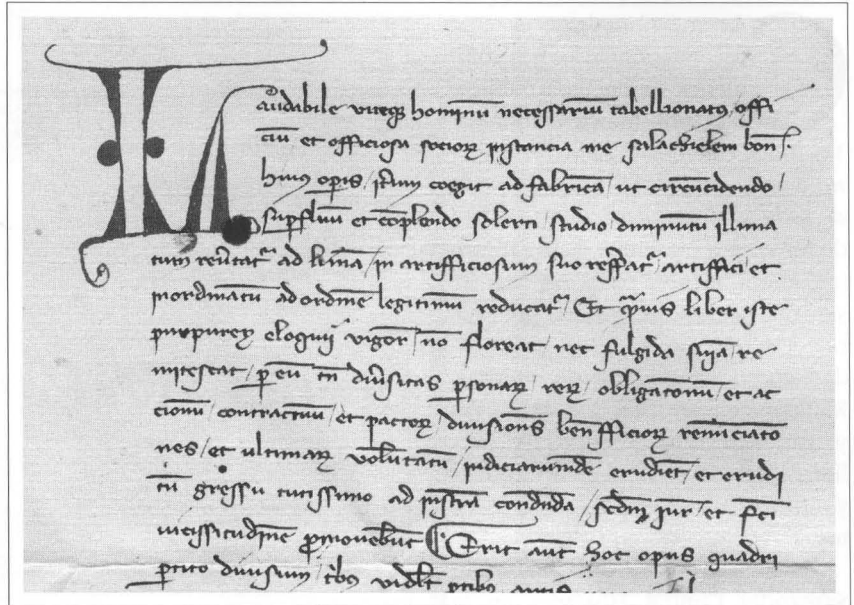 Laudabile viteqz hominū necessarium tabellionatus offi
ciū et officiosa socioꝝ instancia me salachielem bon̄.
huius operis / itm̄ coegit ad fabricā / ut circūcidendo /
suꝑfluū et cōplendo solerti / studio diminutū illima
tum ad limā / in artifficiosum suo artiffici / et
inordinatū ad ordinē legitimū reducat᷑ / Et liber iste
purpurei eloquii vigor̄ / nō floreat / nec fulgida re
mitescat / ꝑ eū tn̄ diūsitas ꝑsonaꝝ / reꝝ / obligatonū / et ac
cionū / contractuū / et pactoꝝ / diuisionē ben̄fficioꝝ renūciato
nes / et ultimaꝝ volūtatū / iudiciarum erudiet / et erudi
tū gressu tutissimo ad instrā / iur̄ / et fc̄i
vicissitudinē ꝓmouebūt Erit aūt hoc opus quadri
ꝑtito diuisum / vidlt ꝑtibꝰ